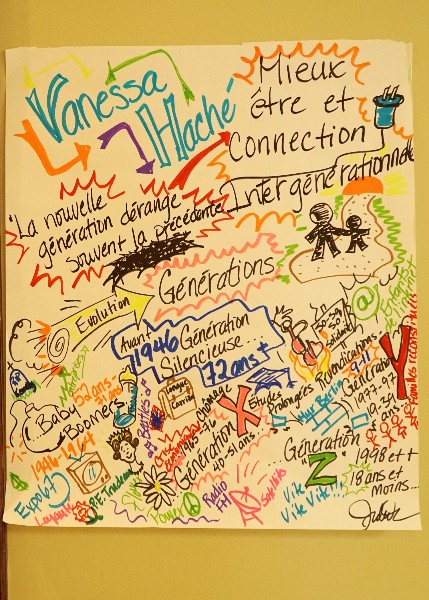 Vanessa
Haché
Mieux
être et
Connection
Intergénérationnelle
"La nouvelle
génération dérange
souvent la précédente
Générations
Evolution
@
Avant
1946 Génération
Silencieuse...
72 ans +
...Baby
Boomers
1946-1964
Expo 67
P.E. Trudeau
Flower
Power
Banque à
Carrière
Chômage
1965-1976
Génération
X
40-51 ans
Radio
FM
Études
Prolongées
So, So, So
Solidarité
Revendications
9-11
Mur Berlin
Génération
Y
1977-97
19-39
ans
Familles reconstituées
...Génération
"Z"
1998 et +
18 ans et
moins...
Vite
Vite Vite!!!